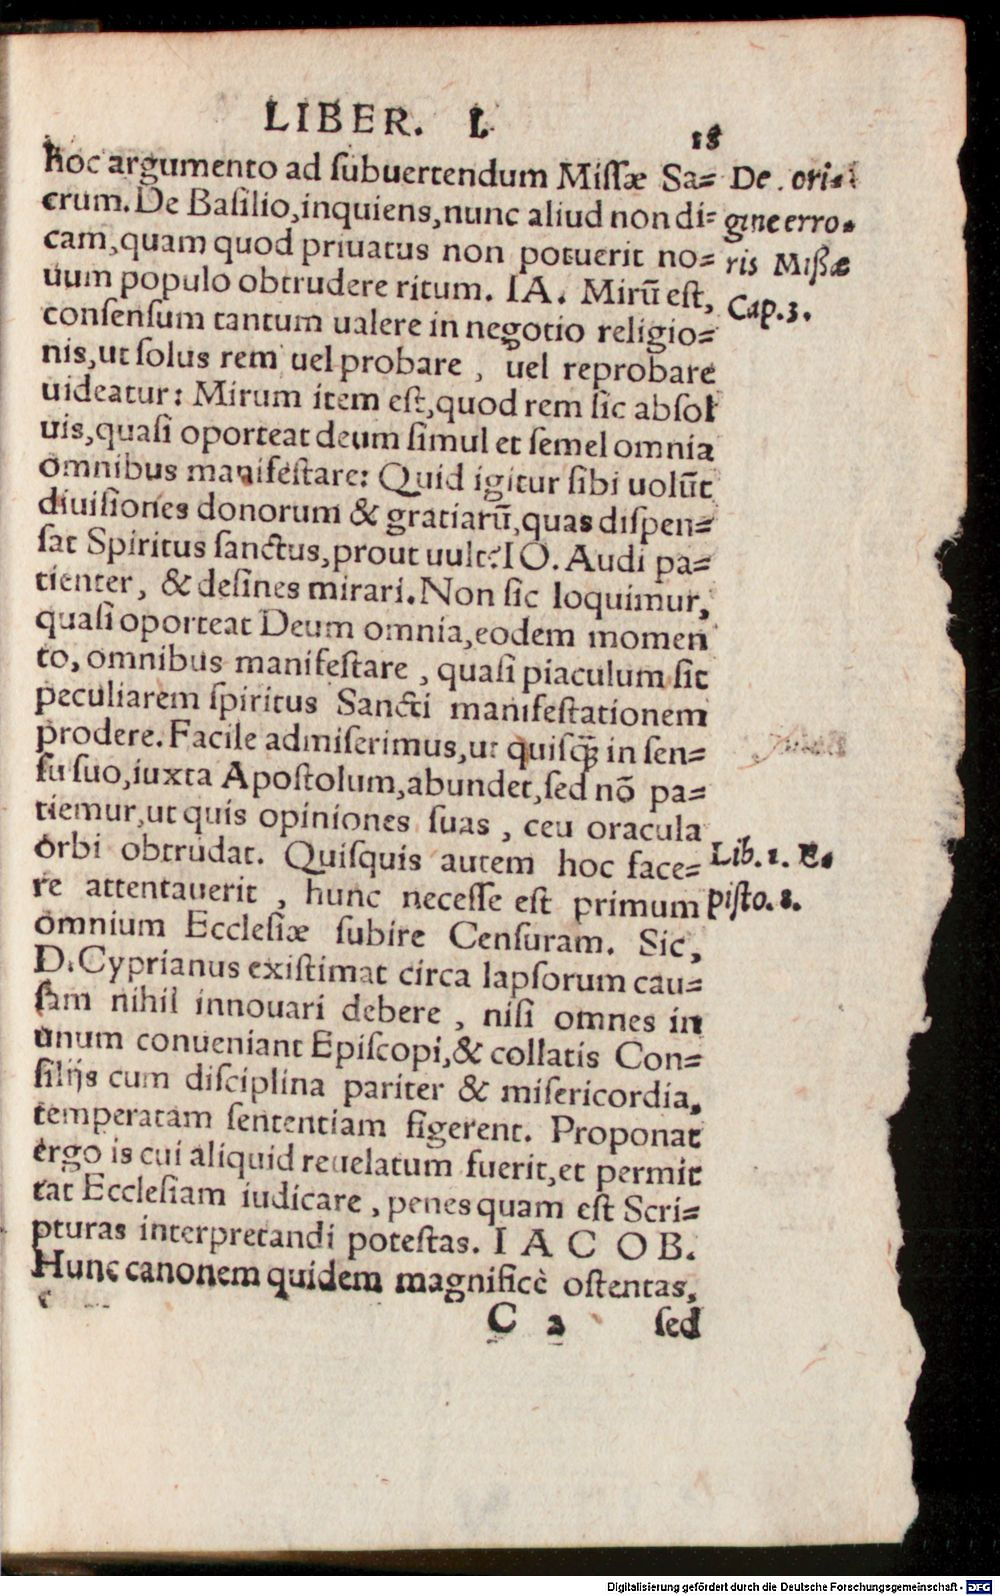 LIBER. I.
18
hoc argumento ad subuertendum Missæ Sa=
crum. De Basilio, inquiens, nunc aliud non di=
cam, quam quod priuatus non potuerit no=
uum populo obtrudere ritum. IA. Mirũ est,
consensum tantum ualere in negotio religio=
nis, ut solus rem uel probare, uel reprobare
uideatur: Mirum item est, quod rem sic absol
uis, quasi oporteat deum simul et semel omnia
omnibus manifestare: Quid igitur sibi uolũt
diuisiones donorum & gratiarũ, quas dispen=
sat Spiritus sanctus, prout uult? IO. Audi pa=
tienter, & desines mirari. Non sic loquimur,
quasi oporteat Deum omnia, eodem momen
to, omnibus manifestare, quasi piaculum sit
peculiarem spiritus Sancti manifestationem
prodere. Facile admiserimus, ut quisq̃ in sen=
su suo, iuxta Apostolum, abundet, sed nõ pa=
tiemur, ut quis opiniones suas, ceu oracula
orbi obtrudat. Quisquis autem hoc face=
re attentauerit, hunc necesse est primum
omnium Ecclesiæ subire Censuram. Sic,
D. Cyprianus existimat circa lapsorum cau=
sam nihil innouari debere, nisi omnes in
unum conueniant Episcopi, & collatis Con=
silijs cum disciplina pariter & misericordia,
temperatam sententiam figerent. Proponat
ergo is cui aliquid reuelatum fuerit, et permit
tat Ecclesiam iudicare, penes quam est Scri=
pturas interpretandi potestas. IACOB.
Hunc canonem quidem magnificè ostentas,
C 2 sed
De ori=
gine erro.
ris Missæ
Cap. 3.
Lib. 1. E.
pisto. 8.
Digitalisierung gefördert durch die Deutsche Forschungsgemeinschaft - DFG